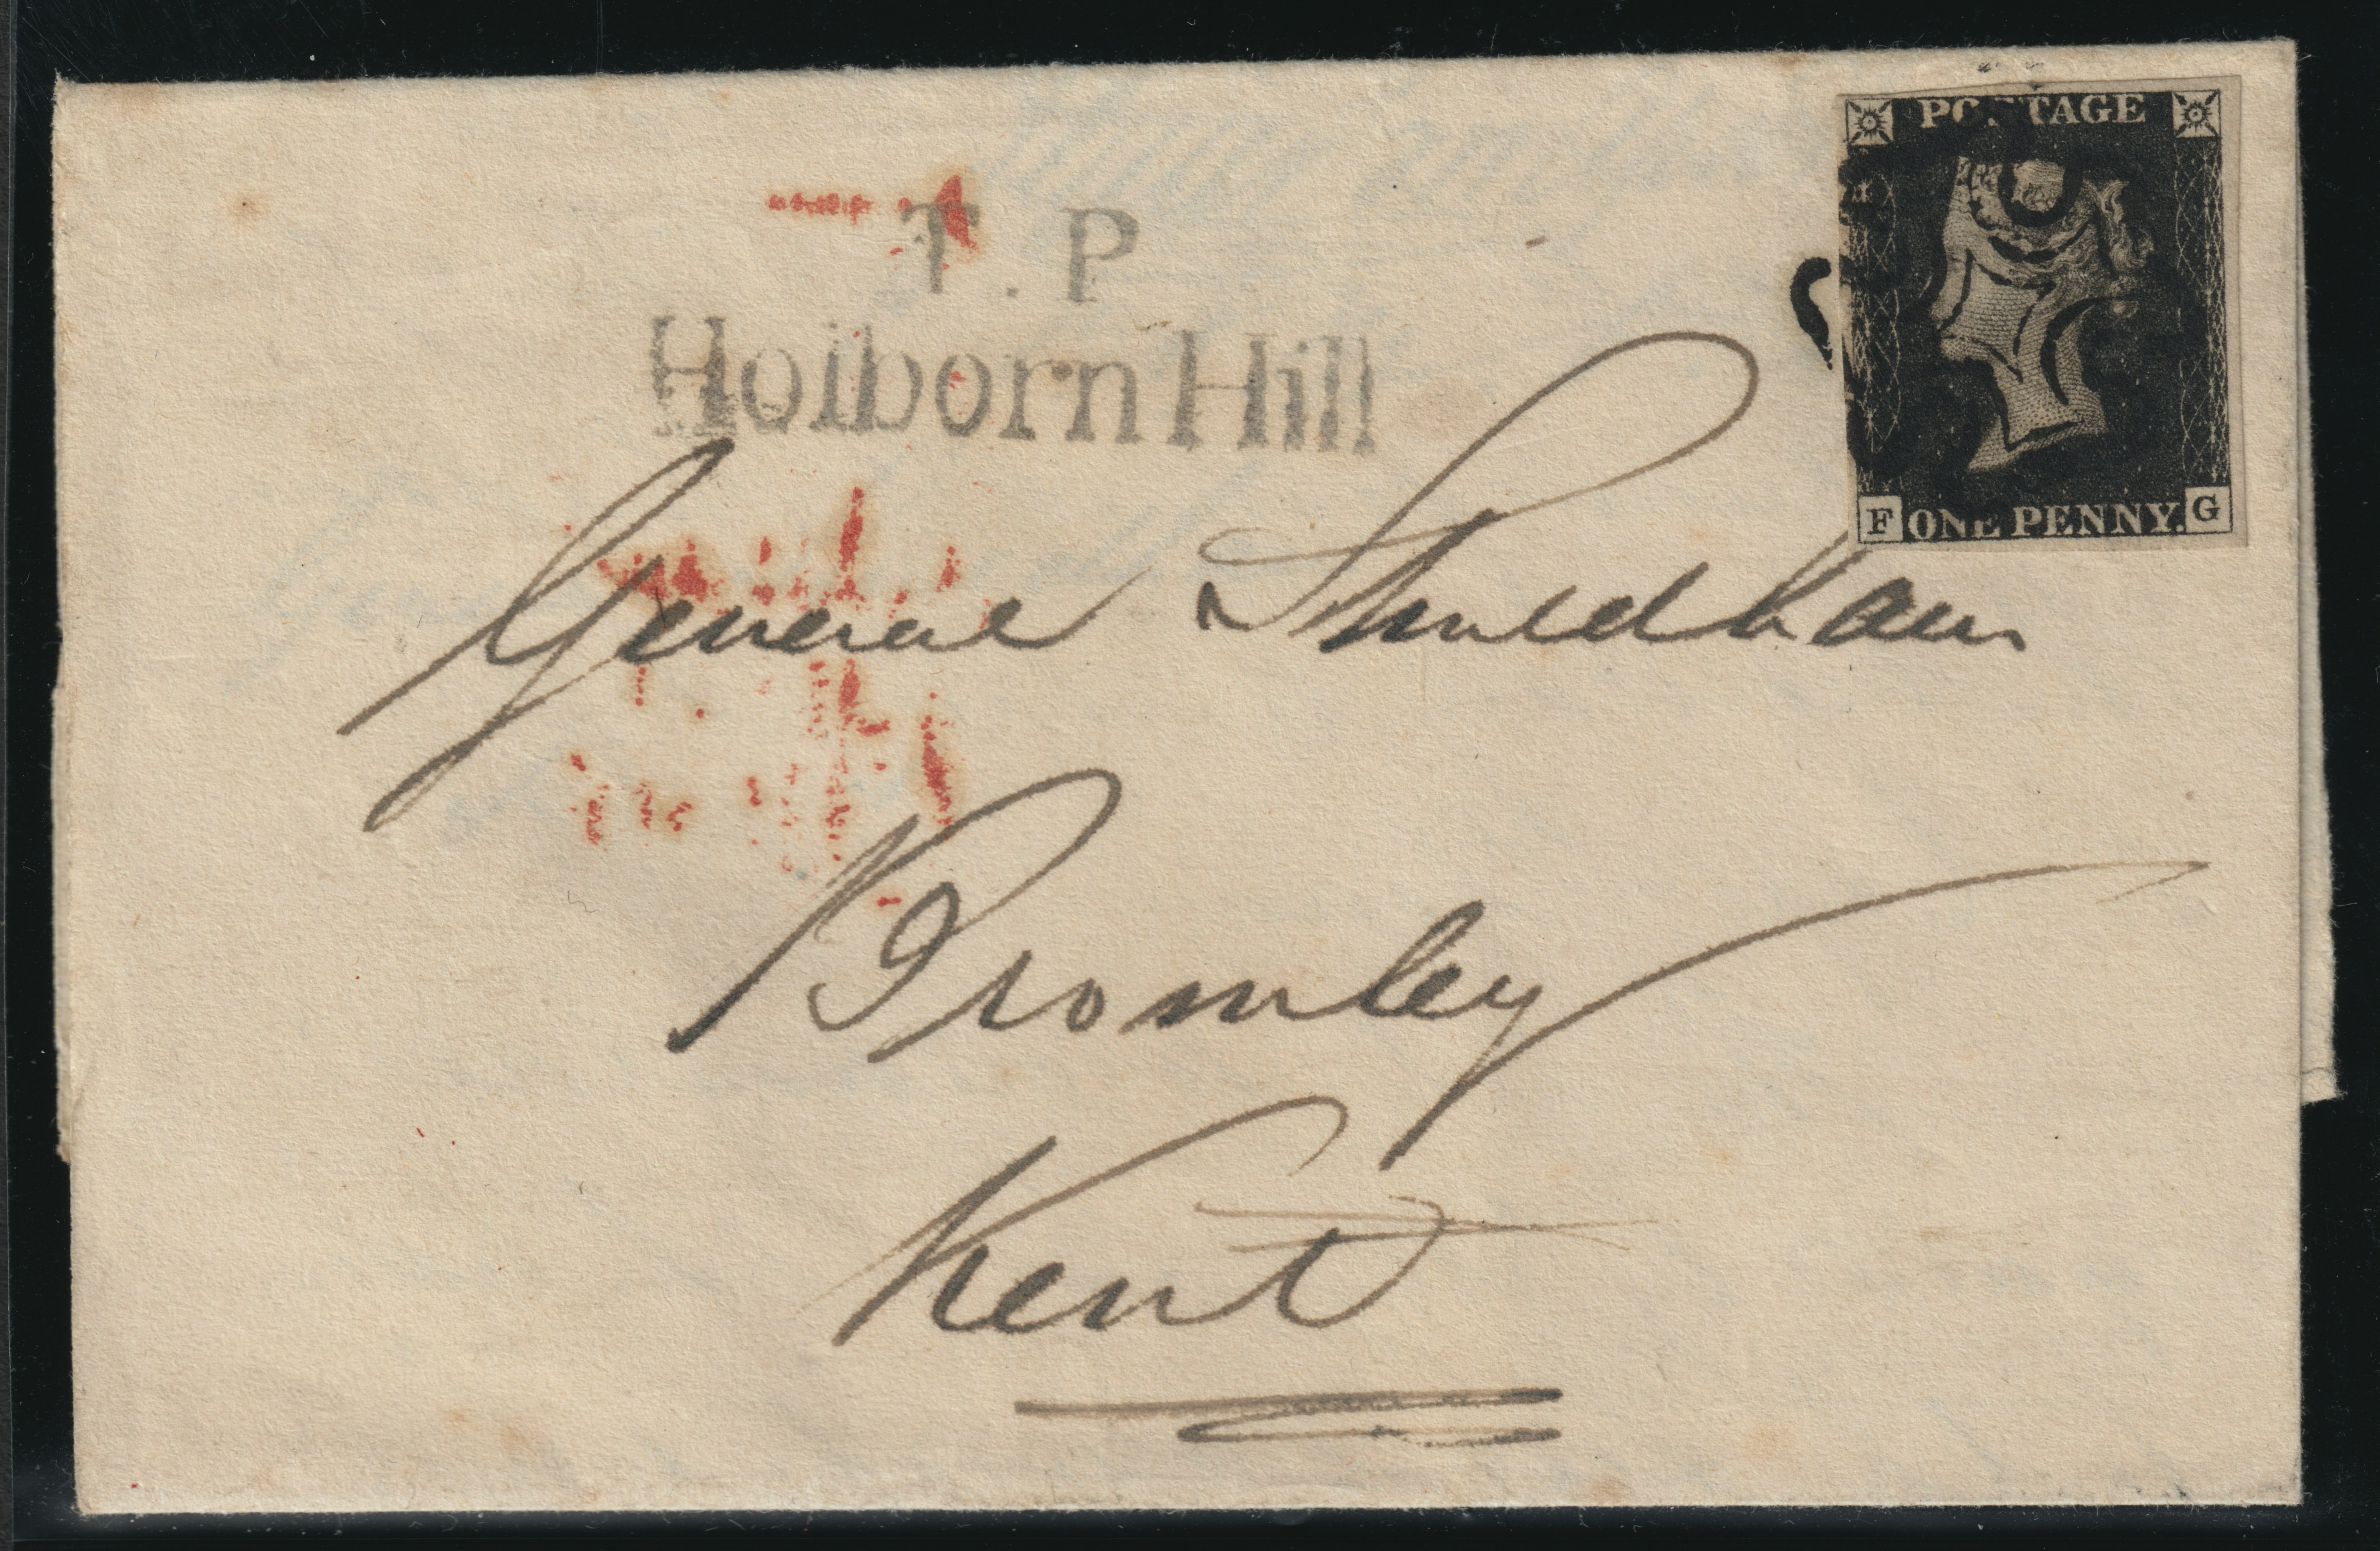 POSTAGE
T.P
Holborn Hill
F ONE PENNY. G
General Shuldham
Bromley
Kent